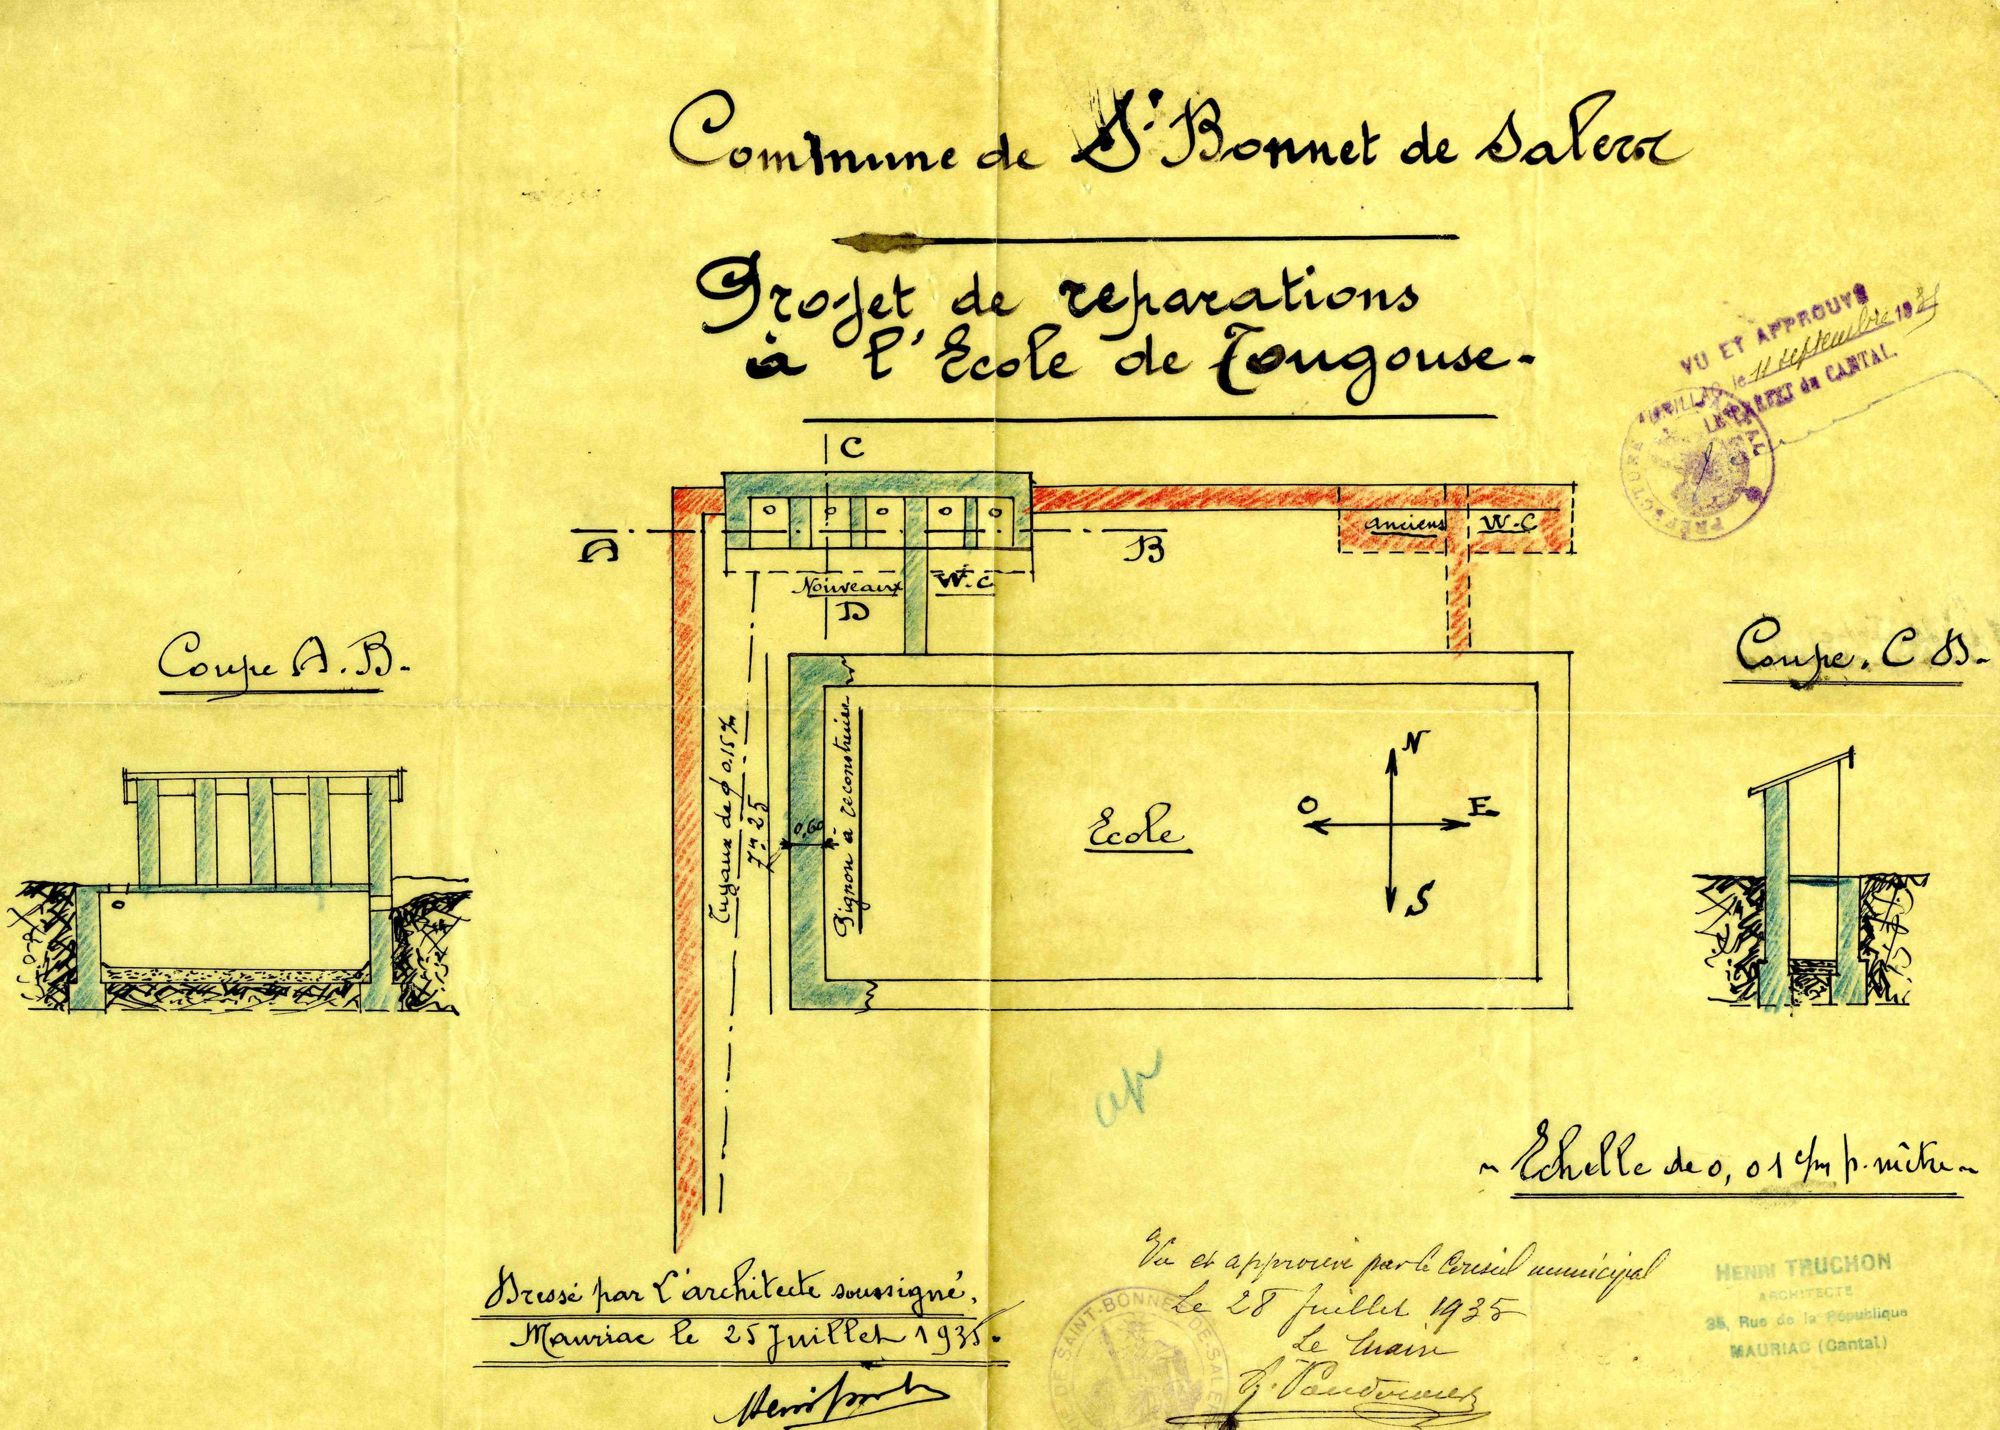 Commune de St Bonnet de Salers
Projet de reparations
à l'Ecole de Tougouse-
VU ET APPROUVÉ
le 11 septembre 1935
LE PRÉFET du CANTAL.
PRÉFECTURE
C
anciens W.C
A
B
Nouveaux W.C
D
Coupe A.B-
Coupe. C D-
Tuyaux de ф 0.15 %
7m 25
0,60
Pignon à reconstruire
Ecole
N
O
E
S
ap
~ Echelle de 0,01 c/m p. mètre ~
Dressé par L'architecte soussigné.
Mauriac le 25 Juillet 1935.
Vu et approuvé par le Conseil municipal
Le 28 Juillet 1935
Le Maire
DE SAINT-BONNET-DE-SALERS
HENRI TRUCHON
ARCHITECTE
35, Rue de la République
MAURIAC (Cantal)